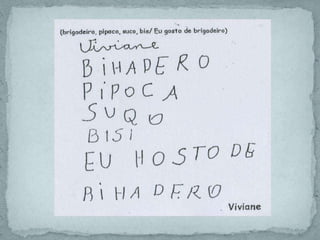 (brigadeiro, pipoca, suco, bis/ Eu gosto de brigadeiro)
Viviane
BIHADERO
PIPOCA
SUQO
BISI
EU HOSTO DE
BIHADERO
Viviane